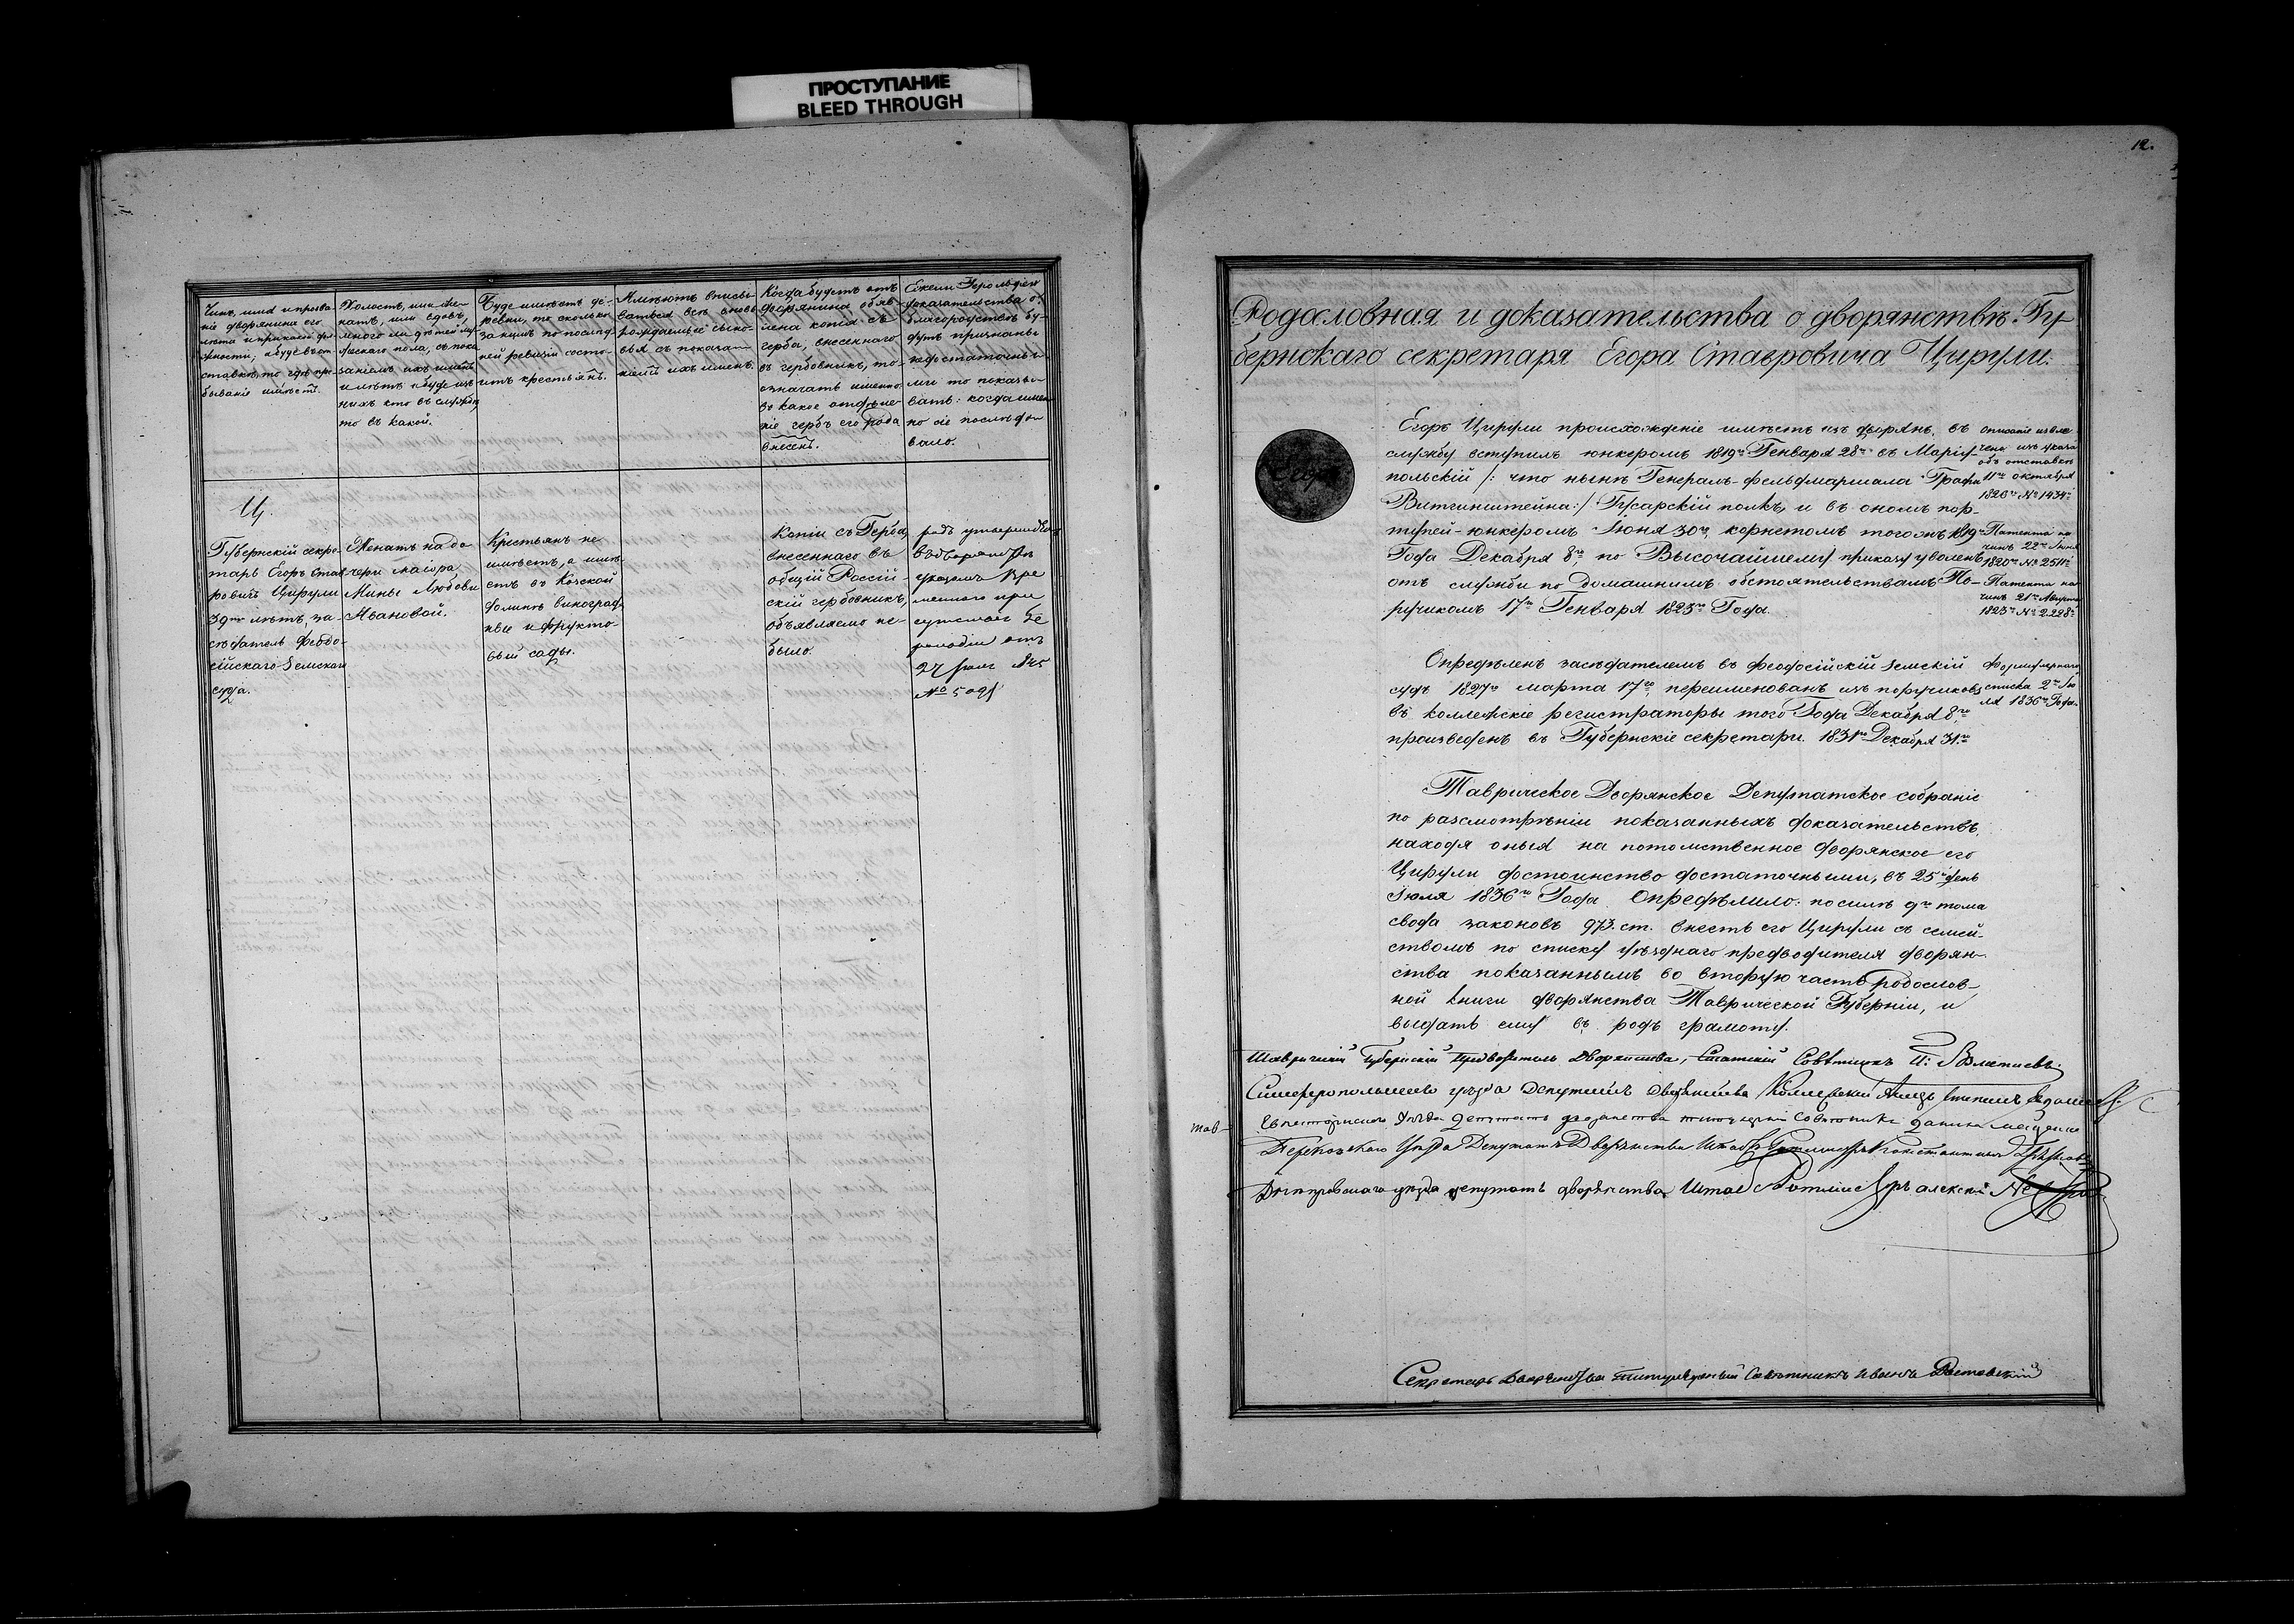 ПРОСТУПАНИЕ
BLEED THROUGH
Чинъ, имя и прозва-
ніе дворянина его
лѣта и при какой до-
лжности, а буде въ от-
ставкѣ, то гдѣ пре-
бываніе имѣетъ.
Холостъ, или же-
натъ, или вдовъ,
много ли дѣтей му-
жескаго пола, съ пока-
заніемъ ихъ именъ
и лѣтъ и буде изъ
нихъ кто въ службѣ
то въ какой.
Буде имѣетъ де-
ревни, то сколько
за нимъ по послѣд-
ней ревизіи состо-
итъ крестьянъ.
Имѣютъ вписы-
ваться всѣ вновь
рождаемые сыно-
вья съ показа-
ніемъ ихъ именъ.
Когда будетъ отъ
дворянина объяв-
лена копія съ
герба, внесеннаго
въ гербовникъ, то
означать именно
въ какое отдѣле-
ніе гербъ его рода
внесенъ.
Ежели Герольдіею
доказательства о
благородствѣ бу-
дутъ признаны
недостаточны-
ми то показы-
вать: когда имен-
но сіе послѣдо-
вало.
Ц.
Губернскій секре-
тарь Егоръ Став-
ровичъ Цирули
39ти лѣтъ, за-
сѣдатель Ѳеодо-
сійскаго Земскаго
суда.
Женатъ на до-
чери маіора
Мины Любови
Ивановой.
Крестьянъ не
имѣетъ, а имѣ-
етъ въ Козской
долинѣ виноград-
ные и фрукто-
вый сады.
Копіи съ Герба,
внесеннаго въ
общій Россій-
скій гербовникъ,
объявляемо не-
было.
родъ утвержденъ
въ дворянствѣ
указомъ Вре
меннаго при
сутствія Ге
рольдіи отъ
27 1845
№
12.
Родословная и доказательства о дворянствѣ. Гу-
бернскаго секретаря Егора Ставровича Цирули.
Егоръ
Егоръ Цирули происхожденіе имѣетъ изъ дворянъ, въ
службу вступилъ юнкеромъ 1819го Генваря 28го въ Маріу-
польскій /: что нынѣ Генералъ-фельдмаршала Графа
Витгинштейна:/ Гусарскій полкъ, и въ ономъ пор-
тупей-юнкеромъ Іюня 30го, корнетомъ того жъ 1819го
Года Декабря 8го, по Высочайшему приказу уволенъ
отъ службы по домашнимъ обстоятельствамъ По-
ручикомъ 17го Генваря 1823го Года.
Описаніе извле-
чено изъ указа
объ отставкѣ
11го октября
1826го №1434го
Патента на
чинъ 22го Іюня
1820го № 2511го
Патента на
чинъ 21го Августа
1823го № 2228го
Опредѣленъ засѣдателемъ въ Ѳеодосійскій Земскій
судъ 1827го марта 17го, переименованъ изъ поручиковъ
въ коллежскіе регистраторы того Года Декабря 8го,
произведенъ въ Губернскіе секретари 1831го Декабря 31го.
Формулярнаго
списка 2го Ію
ля 1836го Года.
Таврическое Дворянское Депутатское собраніе
по разсмотрѣніи показанныхъ доказательствъ,
находя оныя на потомственное дворянское его
Цирули достоинство достаточными, въ 25й день
Іюля 1836го Года Опредѣлило: по силѣ 9го тома
свода законовъ 973. ст. внесть его Цирули съ семей-
ствомъ по списку уѣзднаго предводителя дворян-
ства показаннымъ во вторую часть родослов-
ной книги дворянства Таврической Губерніи, и
выдать ему въ родъ грамоту.
Таврическій Губернскій Предводитель Дворянства, Статскій Совѣтникъ
Симферопольскаго уѣзда Депутатъ Дворянства Коллежскій
Евпаторійскаго Уѣзда Депутатъ дворянства титулярный Совѣтникъ
Перекопскаго Уѣзда Депутатъ Дворянства Штабъ Ротмистръ Константинъ
Днѣпровскаго уѣзда депутатъ дворянства Штабс Ротмистръ алексѣй
Секретарь Дворянства Титулярный Совѣтникъ Иванъ